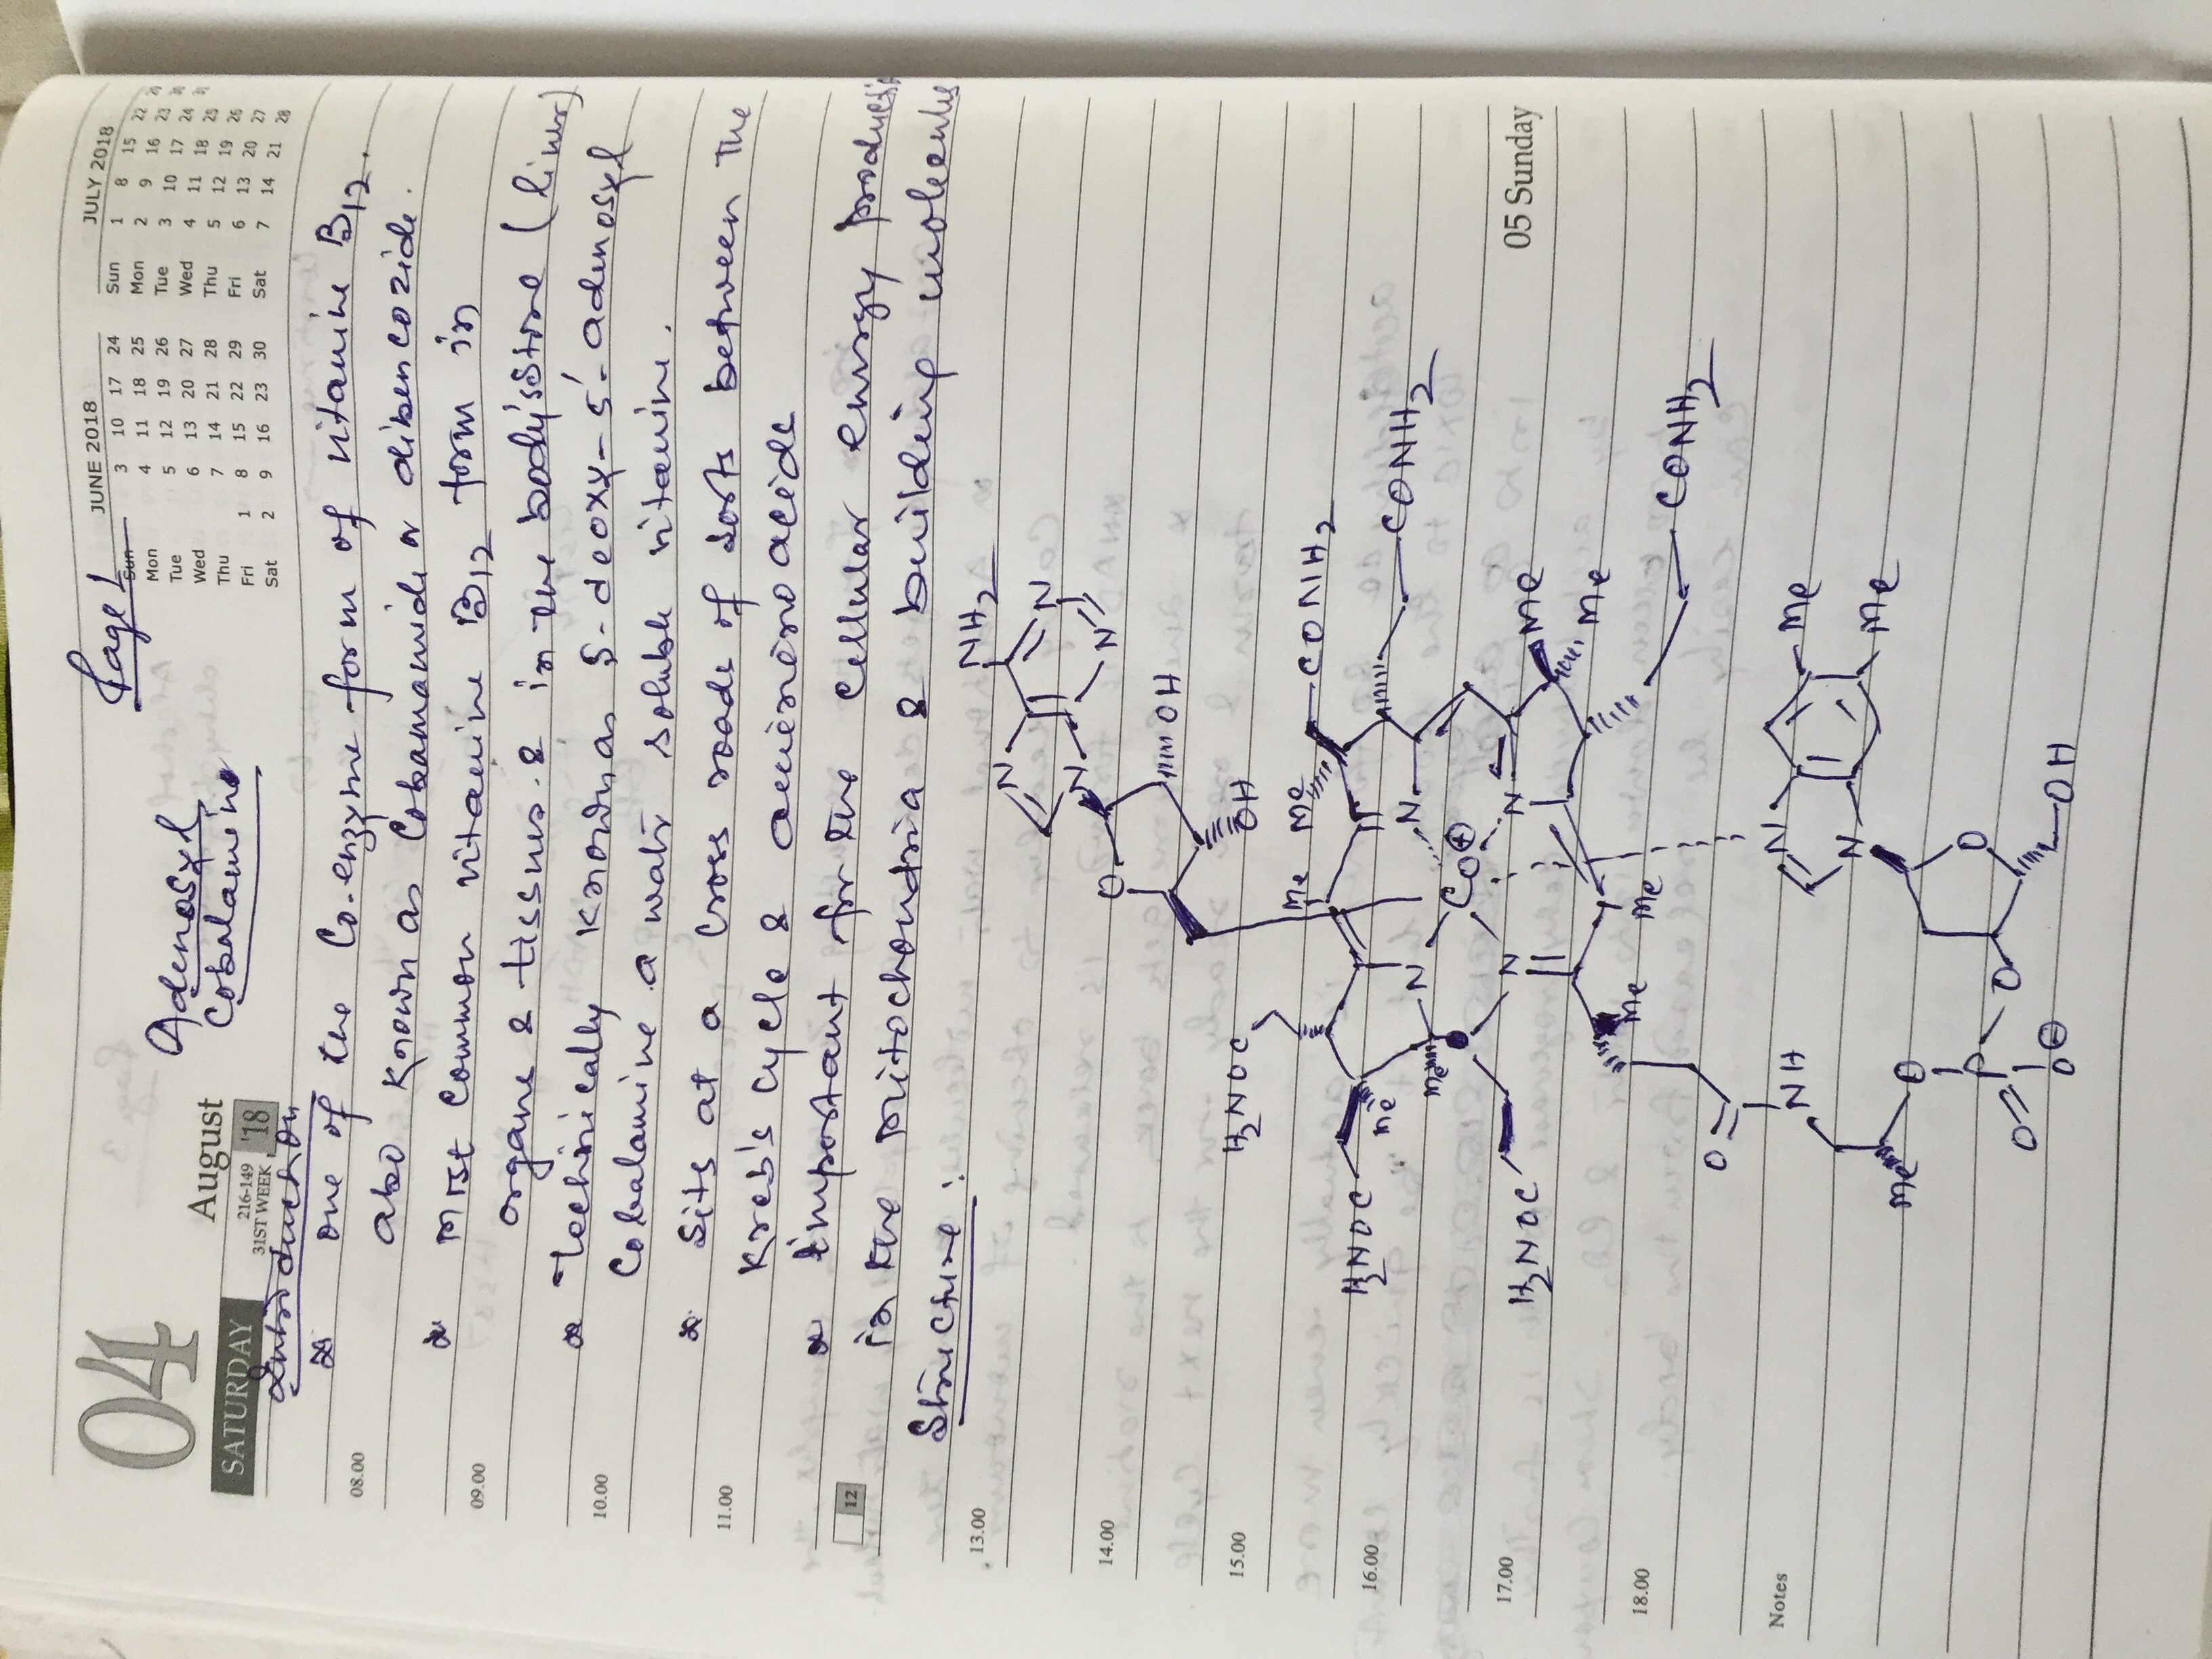 Page 1
04 August
216-149
31ST WEEK '18
SATURDAY
Adenosyl
Cobalamine
JUNE 2018
Sun 3 10 17 24
Mon 4 11 18 25
Tue 5 12 19 26
Wed 6 13 20 27
Thu 7 14 21 28
Fri 1 8 15 22 29
Sat 2 9 16 23 30
JULY 2018
Sun 1 8 15 22 29
Mon 2 9 16 23 30
Tue 3 10 17 24 31
Wed 4 11 18 25
Thu 5 12 19 26
Fri 6 13 20 27
Sat 7 14 21 28
Introduction
one of the Co.enzyme form of vitamine B12.
08.00
also known as Cobamamide or dibencozide.
most Common vitamine B12 form in
09.00
organs & tissues. & in the body's store (liver)
Technically known as 5-deoxy-5'-adenosyl
10.00
Cobalamine a water soluble vitamine.
Sits at a Cross roads of sorts between the
11.00
Kreb's cycle & amino acids
important for the Cellular energy
12
in the mitochondria & building molecules
Structure:
13.00
NH2
N
N
N
N
14.00
O
OH
OH
15.00
H2NOC
Me
Me
CONH2
16.00
H2NOC
Me
N
N
CONH2
Me
Co⊕
17.00
H2NOC
N
N
Me
Me
05 Sunday
Me
Me
CONH2
18.00
O
NH
N
Me
Notes
N
Me
Me
O
O
P
O
O
O⊖
OH